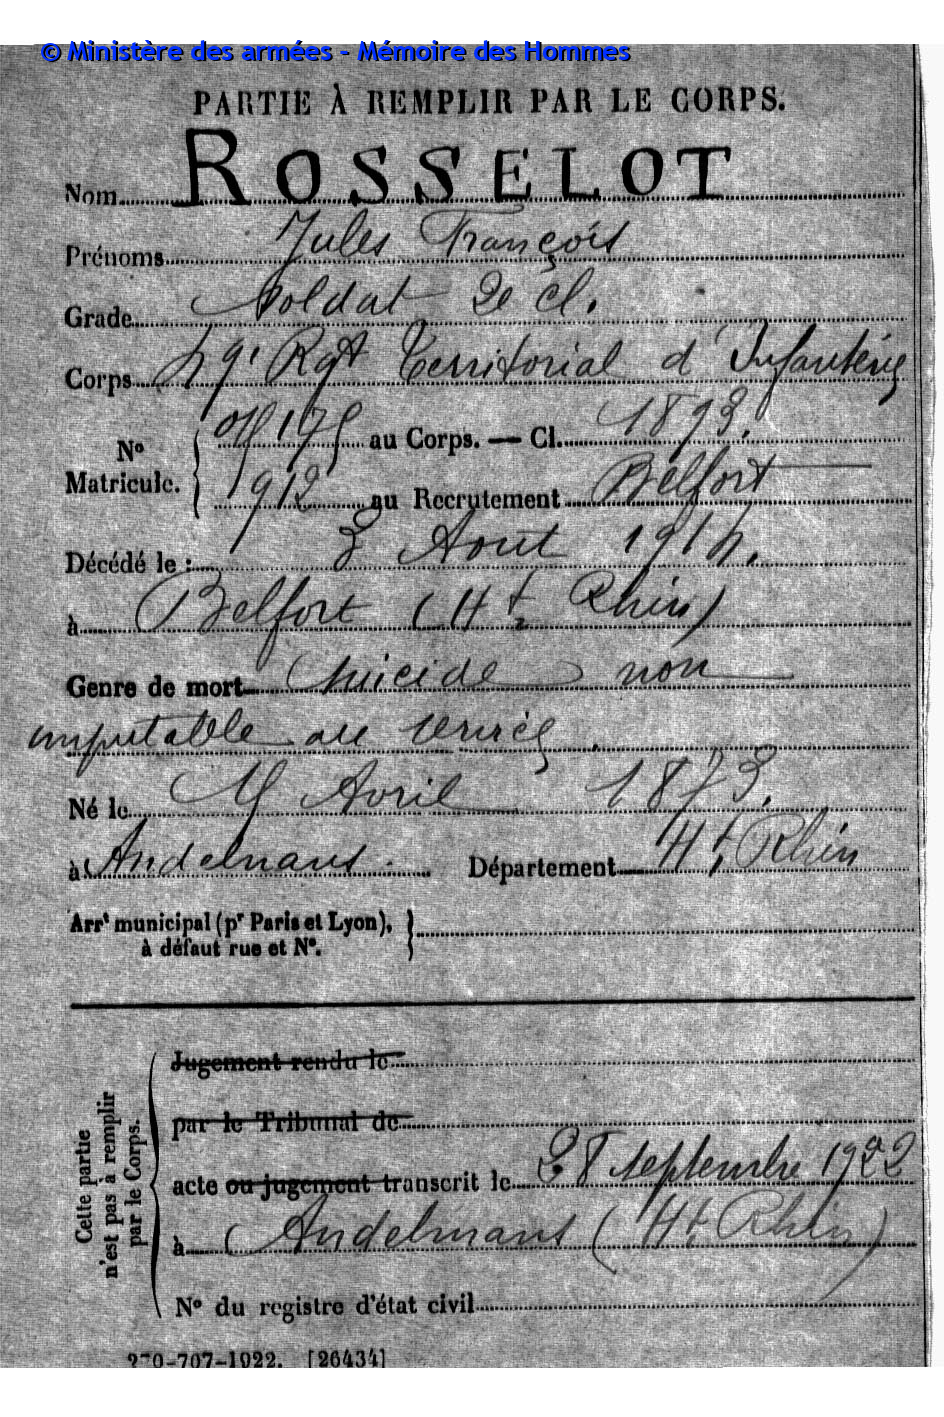 © Ministère des armées - Mémoire des Hommes
PARTIE À REMPLIR PAR LE CORPS.
Nom ROSSELOT
Prénoms Jules François
Grade Soldat 2e cl.
Corps 49e Rgt Territorial d'Infanterie
Nº Matricule. { au Corps. — Cl. 1893.
1912 au Recrutement Belfort
Décédé le : 3 Aout 1914.
à Belfort (Ht Rhin)
Genre de mort Suicide non
imputable au service.
Né le Avril 1873.
à Andelnans. Département Ht Rhin
Arrt municipal (pr Paris et Lyon), }
à défaut rue et Nº.
Cette partie
n'est pas à remplir
par le Corps.
Jugement rendu le
par le Tribunal de
acte ou jugement transcrit le 28 septembre 1922
à Andelnans (Ht Rhin)
Nº du registre d'état civil
270-707-1922. [26434]